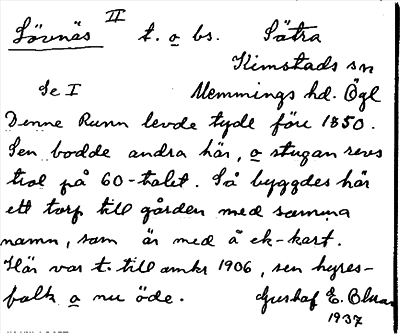 Lövnäs II t. o bs. Sätra
Kimstads sn
Se I Memmings hd. Ögl
Denne Runn levde tyde före 1850.
Sen bodde andra här, o stugan revs
trol på 60-talet. Så byggdes här
ett torp till gården med samma
namn, som är med å ek-kart.
Här var t. till omkr 1906, sen hyres-
folk o nu öde. Gustaf E.
1937